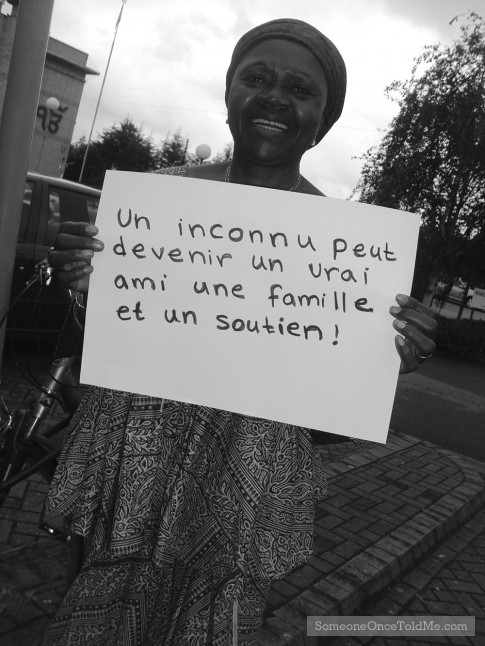 Un inconnu peut
devenir un vrai
ami une famille
et un soutien!
SomeoneOnceToldMe.com